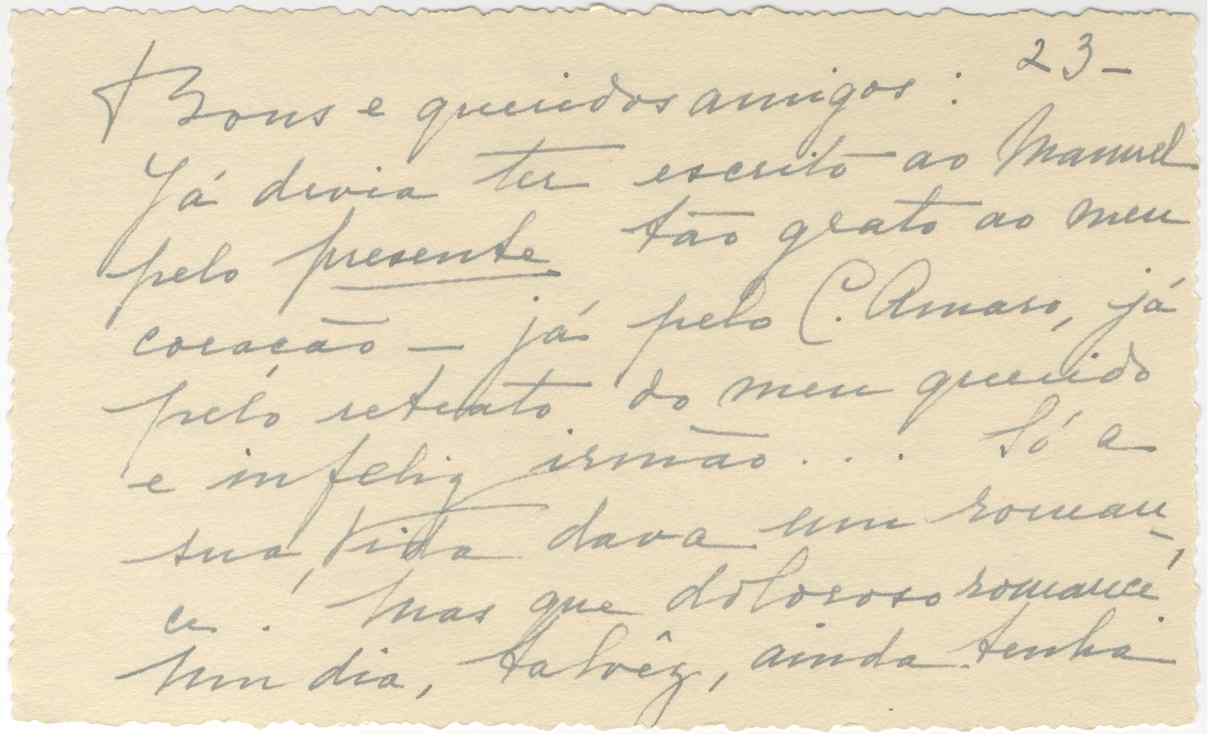 23-
Bons e queridos amigos:
Já devia ter escrito ao Manuel
pelo presente tão grato ao meu
coração — já pelo C. Amaro, já
pelo retrato do meu querido
e infeliz irmão... Só a
sua Vida dava um roman-
ce. Mas que doloroso romance!
Um dia, talvêz, ainda tenha